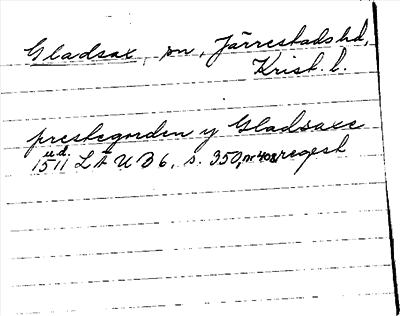 Gladsax, sn, Järrestads hd,
Krist. l.
prestegorden y Gladsaxe
u.d.
1511 LÄUB 6, s. 350, nr 408 regest